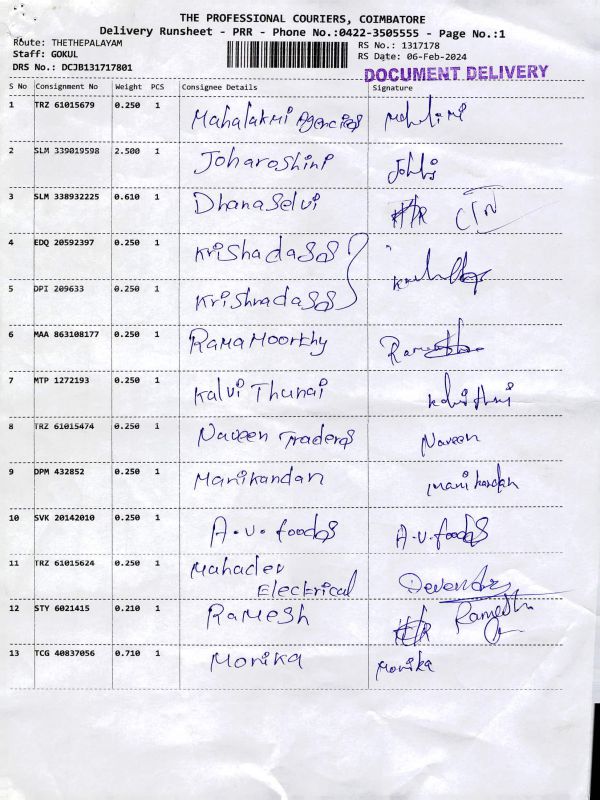 THE PROFESSIONAL COURIERS, COIMBATORE
Delivery Runsheet - PRR - Phone No.:0422-3505555 - Page No.:1
Route: THETHEPALAYAM
RS No.: 1317178
Staff: GOKUL
RS Date: 06-Feb-2024
DRS No.: DCJB131717801
DOCUMENT DELIVERY
S No Consignment No Weight PCS Consignee Details Signature
1 TRZ 61015679 0.250 1 Mahalakmi Agencies
2 SLM 339019598 2.500 1 Joharoshini
3 SLM 338932225 0.610 1 Dhanaselvi
4 EDQ 20592397 0.250 1 Krishadass
5 DPI 209633 0.250 1 Krishnadass
6 MAA 863108177 0.250 1 Rama Moorthy
7 MTP 1272193 0.250 1 Kalvi Thunai
8 TRZ 61015474 0.250 1 Naveen Traders Naveen
9 DPM 432852 0.250 1 Manikandan Manikandan
10 SVK 20142010 0.250 1 A.V. foods A.V. foods
11 TRZ 61015624 0.250 1 Mahadev
Electrical
12 STY 6021415 0.210 1 Ramesh Ramesh
13 TCG 40837056 0.710 1 Monika Monika